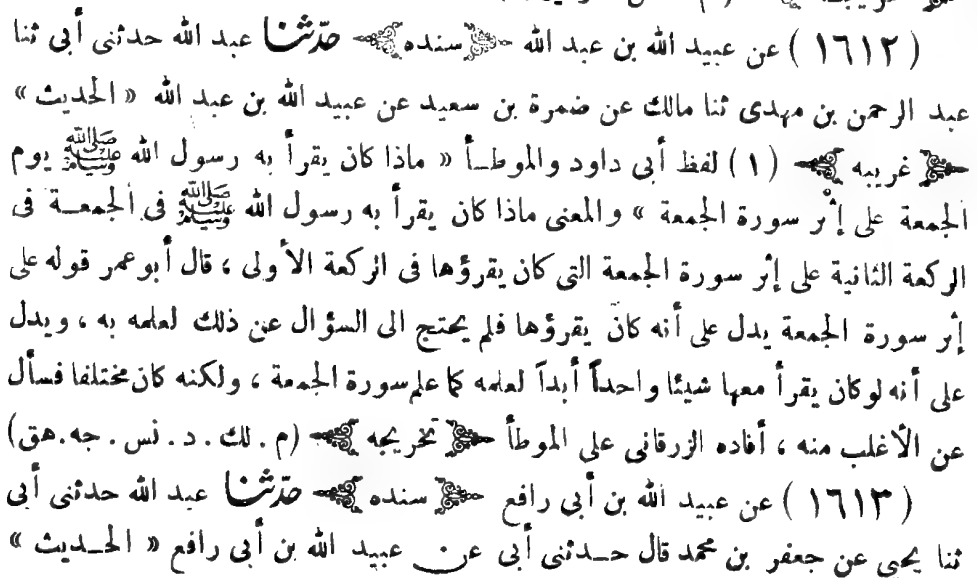 (١٦١٢) عن عبيد الله بن عبد الله ﴿سنده﴾ حدّثنا عبد الله حدثنى أبى ثنا
عبد الرحمن بن مهدى ثنا مالك عن ضمرة بن سعيد عن عبيد الله بن عبد الله « الحديث »
﴿غريبه﴾ (١) لفظ أبى داود والموطـأ « ماذا كان يقرأ به رسول الله ﷺ يوم
الجمعة على إثر سورة الجمعة » والمعنى ماذا كان يقرأ به رسول الله ﷺ فى الجمعـة فى
الركعة الثانية على إثر سورة الجمعة التى كان يقرؤها فى الركعة الأولى ، قال أبو عمر قوله على
إثر سورة الجمعة يدل على أنه كان يقرؤها فلم يحتج الى السؤال عن ذلك لعلمه به ، ويدل
على أنه لو كان يقرأ معها شيئا واحداً أبداً لعلمه كما علم سورة الجمعة ، ولكنه كان مختلفا فسأل
عن الأغلب منه ، أفاده الزرقانى على الموطأ ﴿تخريجه﴾ (م . لك . د . نس . جه . هق)
(١٦١٣) عن عبيد الله بن أبى رافع ﴿سنده﴾ حدّثنا عبد الله حدثنى أبى
ثنا يحيى عن جعفر بن محمد قال حـدثنى أبى عن عبيد الله بن أبى رافع « الحـديث »